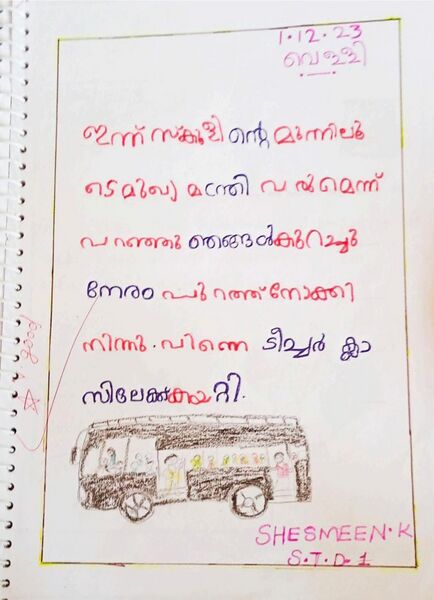 1.12.23
വെള്ളി
ഇന്ന് സ്കൂളിന്റെ മുന്നിലൂ
ടെ മുഖ്യ മന്ത്രി വരുമെന്ന്
പറഞ്ഞു ഞങ്ങൾ കുറച്ചു
നേരം പുറത്ത് നോക്കി
നിന്നു. പിന്നെ ടീച്ചർ ക്ലാ
സിലേക്ക് കയറ്റി.
good
SHESMEEN.K
S.T.D.1